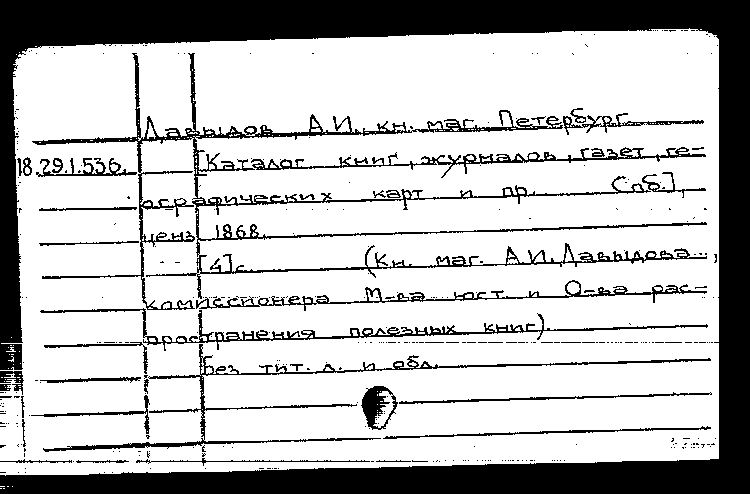 Давыдов, А.И., кн. маг. Петербург.
18.29.1.536. [Каталог книг, журналов, газет, ге-
ографических карт и пр. Спб.],
ценз. 1868.
[4]с. (Кн. маг. А.И. Давыдова..,
комиссионера М-ва юст. и О-ва рас-
пространения полезных книг).
Без тит. л. и обл.